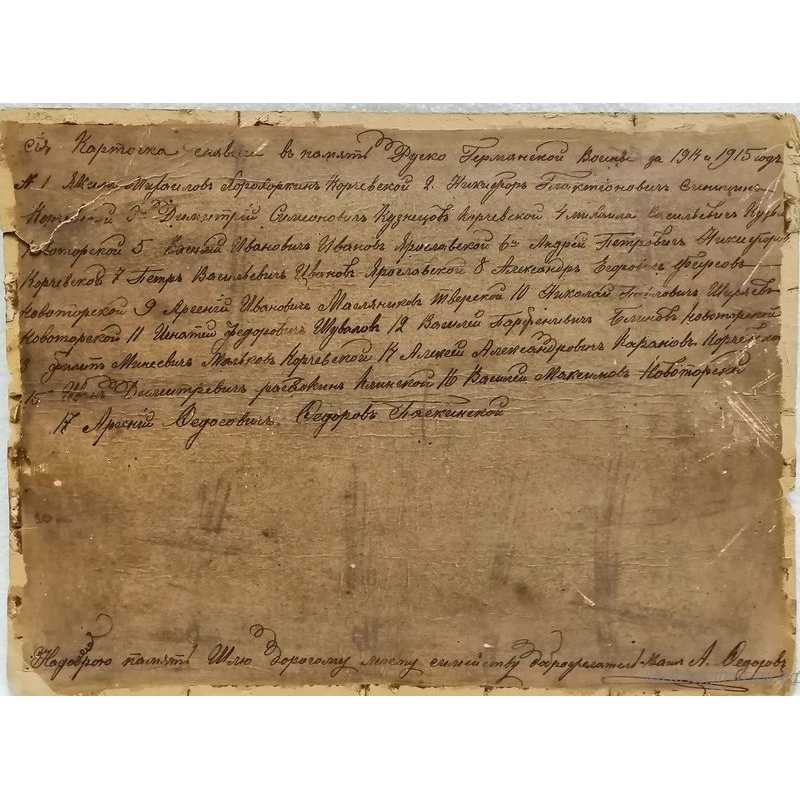 сія Карточка снявши въ память Руско Германской Войны за 1914 и 1915 годъ
№ 1 Корчевской 2. Никифоръ Галактіоновичъ Синицинъ
Корчевской 3й Димитрій Симеоновичъ Кузнецовъ Корчевской 4 Михаила Васильевичъ
Новоторской 5 Василій Ивановичъ Ивановъ Ярославской 6й Андрей Петровичъ Никифоровъ
Корчевской 7 Петръ Васильевичъ Ивановъ Ярославской 8 Александръ Егоровичъ Фирсовъ
Новоторской 9 Арсеній Ивановичъ Масляниковъ Тверской 10 Николай Павловичъ Ширяевъ
Новоторской 11 Игнатій Федоровичъ Шуваловъ 12 Василей Парфенивичъ Блиновъ Новоторской
Минеевичъ Мальковъ Корчевской 14 Алексей Александровичъ Карановъ Корчевской
15 Иванъ Димитревичъ Клинской 16 Василій Максимовъ Новоторской
17 Арсеній Федосовичъ. Федоровъ
Надоброю память Шлю Дорогому моему семейству А. Федоровъ